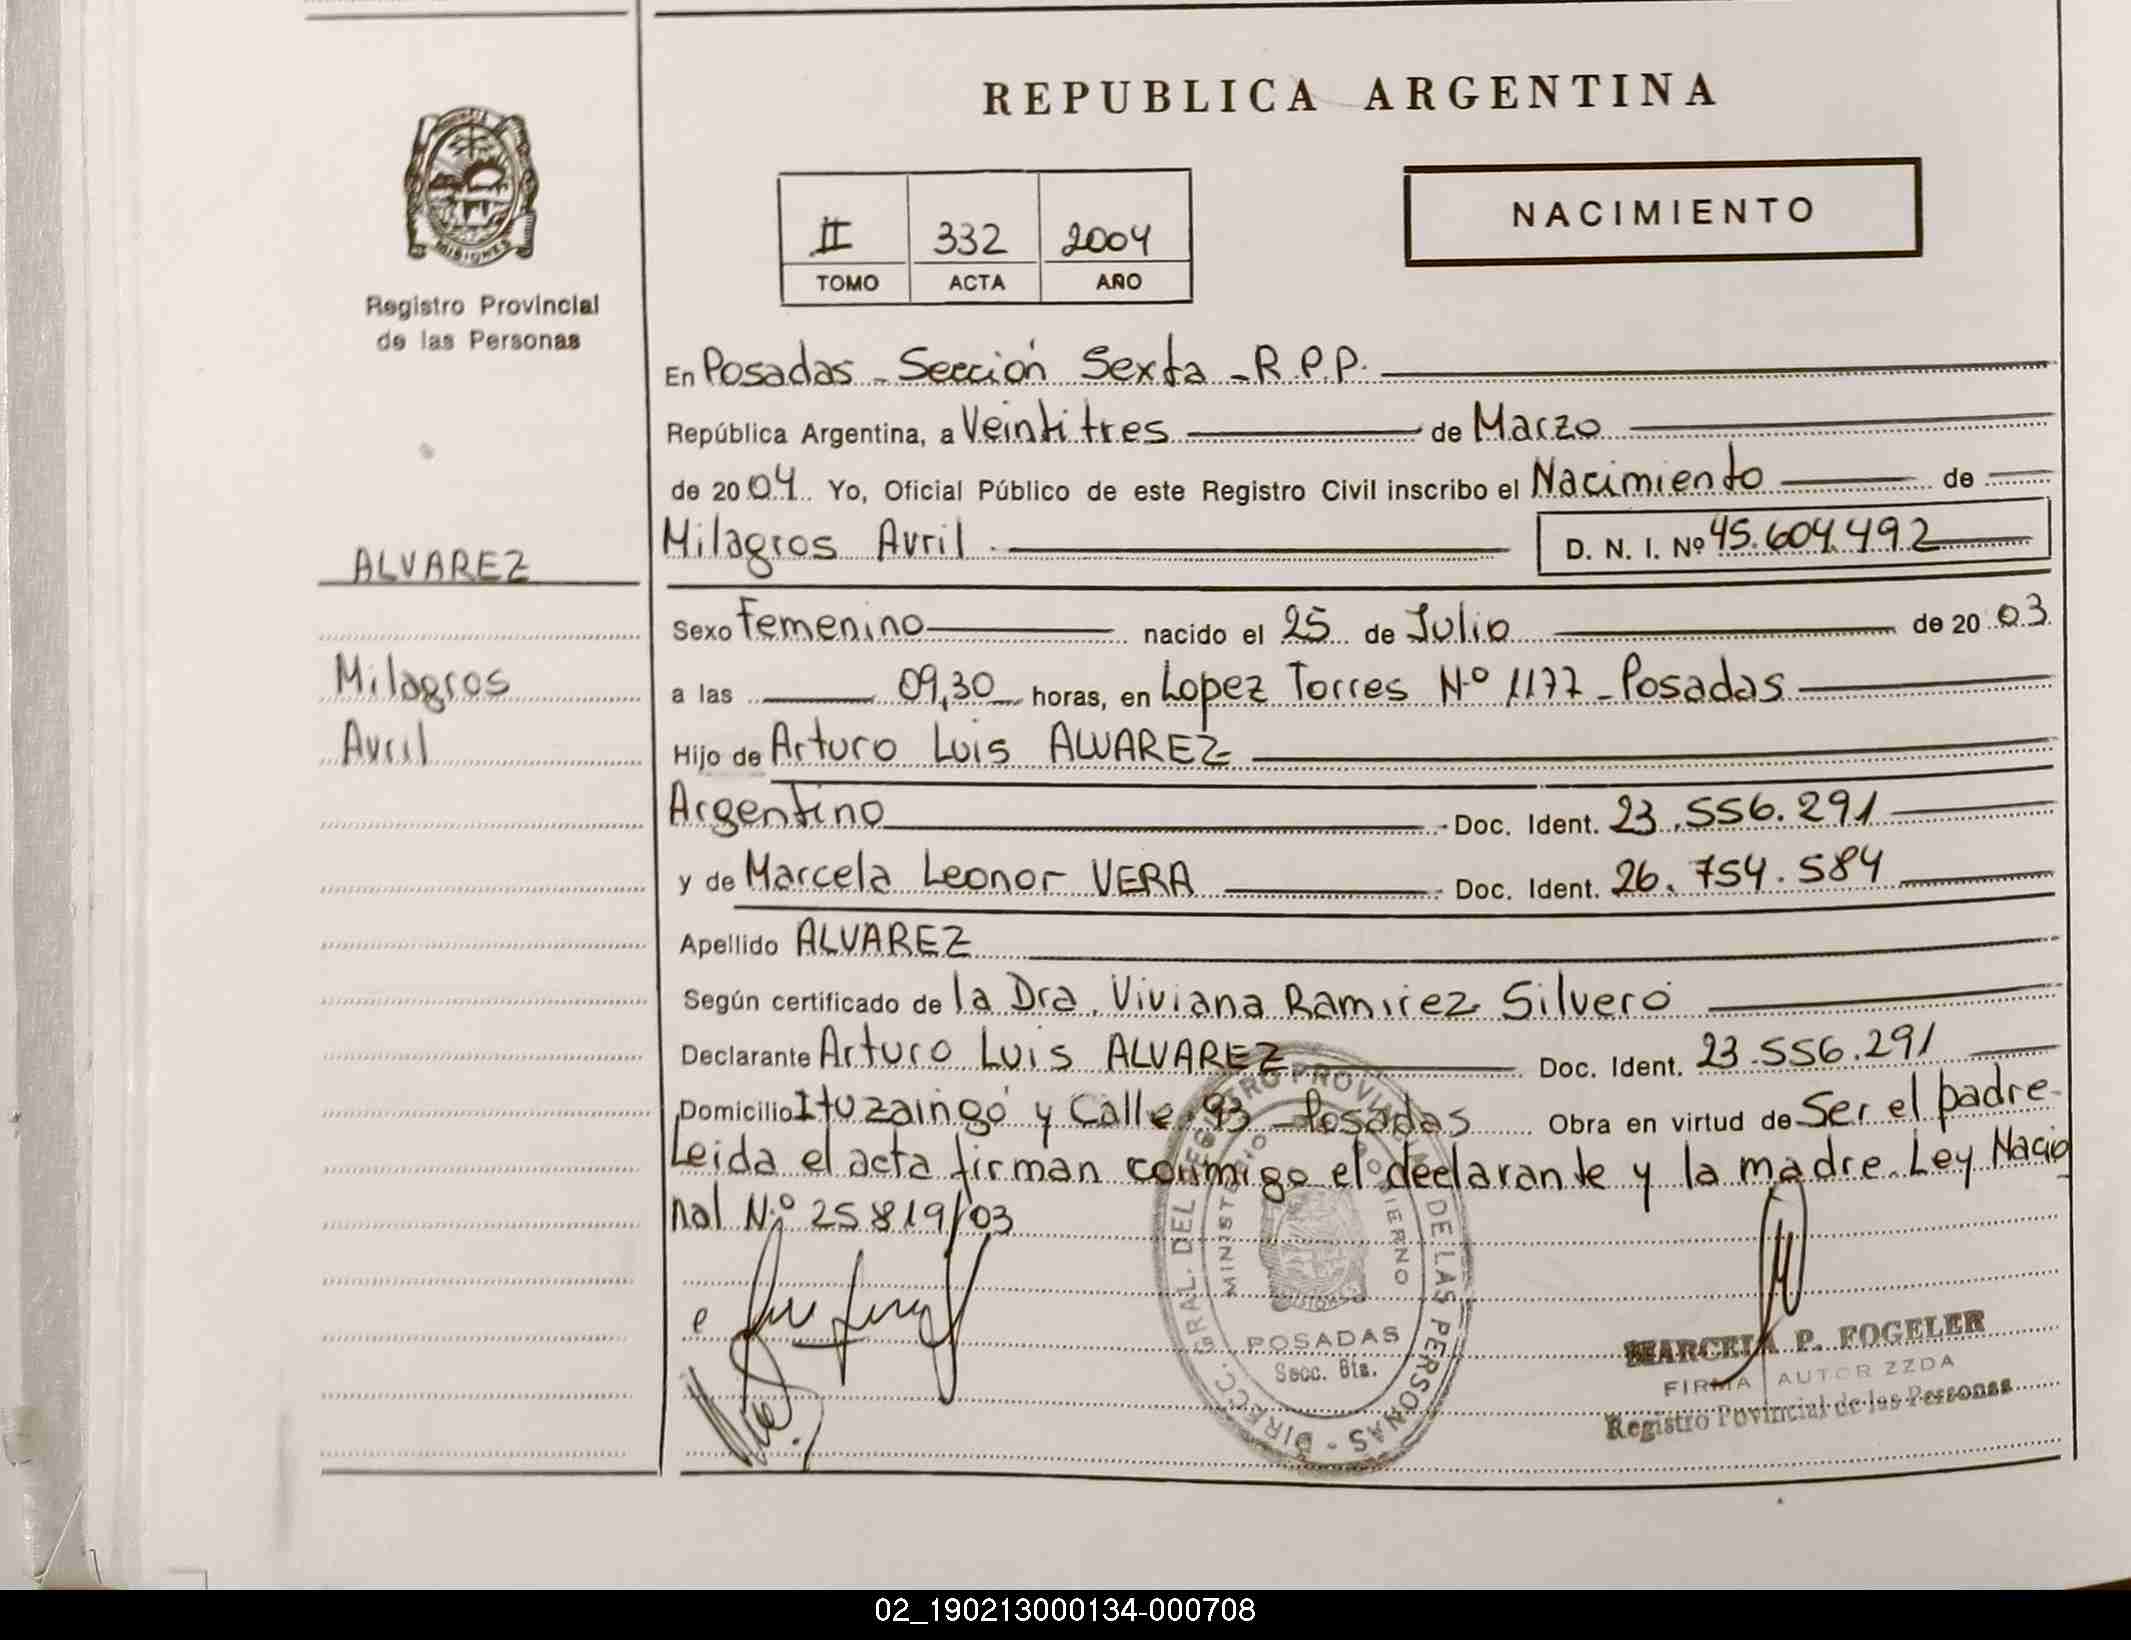 REPUBLICA ARGENTINA
MISIONES
Registro Provincial
de las Personas
II 332 2004
TOMO ACTA AÑO
NACIMIENTO
En Posadas - Sección Sexta - R.P.P.
República Argentina, a Veintitres de Marzo
de 2004. Yo, Oficial Público de este Registro Civil inscribo el Nacimiento de
Milagros Avril D. N. I. Nº 45.604.492
ALVAREZ
Milagros
Avril
Sexo Femenino nacido el 25 de Julio de 2003
a las 09,30 horas, en Lopez Torres Nº 1177 - Posadas
Hijo de Arturo Luis ALVAREZ
Argentino Doc. Ident. 23.556.291
y de Marcela Leonor VERA Doc. Ident. 26.754.584
Apellido ALVAREZ
Según certificado de la Dra. Viviana Ramirez Silvero
Declarante Arturo Luis ALVAREZ Doc. Ident. 23.556.291
Domicilio Ituzaingó y Calle 93 - Posadas Obra en virtud de Ser el padre-
Leida el acta firman conmigo el declarante y la madre. Ley Nacio
nal Nº 25819/03
DIRECC. GRAL. DEL REGISTRO PROVINCIAL DE LAS PERSONAS -
MINISTERIO GOBIERNO
POSADAS
Secc. 6ta.
MARCELA P. FOGELER
FIRMA AUTORIZZDA
Registro Povincial de las Personas
02_190213000134-000708